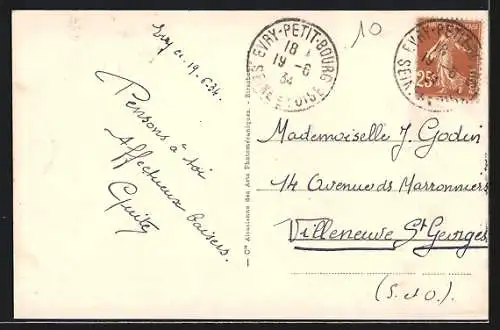 Evry ce 19.6.34.
Pensons à toi
Affectueux baisers.
EVRY-PETIT-BOURG
18
19-6
34
SEINE ET OISE
10
EVRY-PETIT
18
19-6
SEINE
25c
Cie Alsacienne des Arts Photomécaniques. - Strasbourg
Mademoiselle J. Godin
14 Avenue des Marronniers
Villeneuve St Georges
(S. et O.)